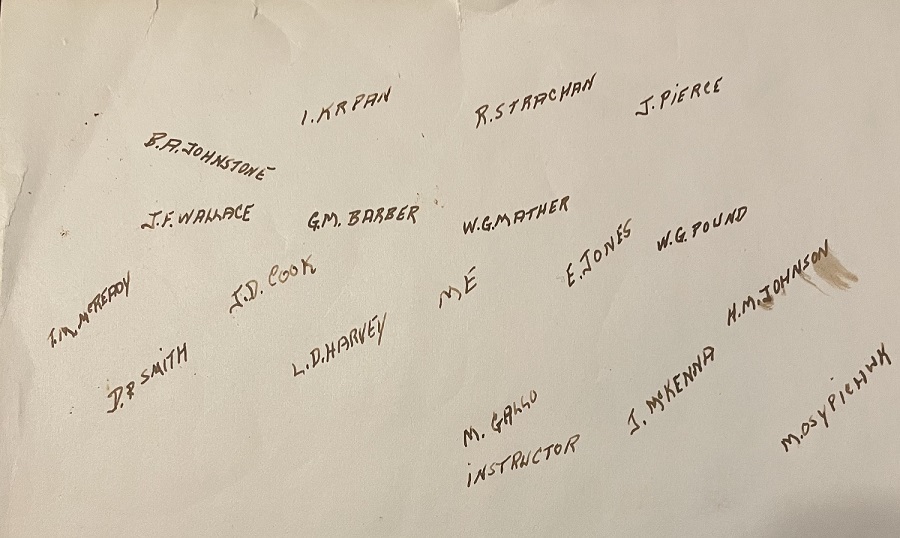 I. KRPAN
R. STRACHAN
J. PiERCE
B.A. JOHNSTONE
J.F. WALLACE
G.M. BARBER
W.G. MATHER
E. JONES
W.G. POUND
J.D. COOK
ME
H.M. JOHNSON
McREADY
SMiTH
L.D. HARVEY
M. GALLO
iNSTRUCTOR
J. McKENNA
M. OSYPiCHWK